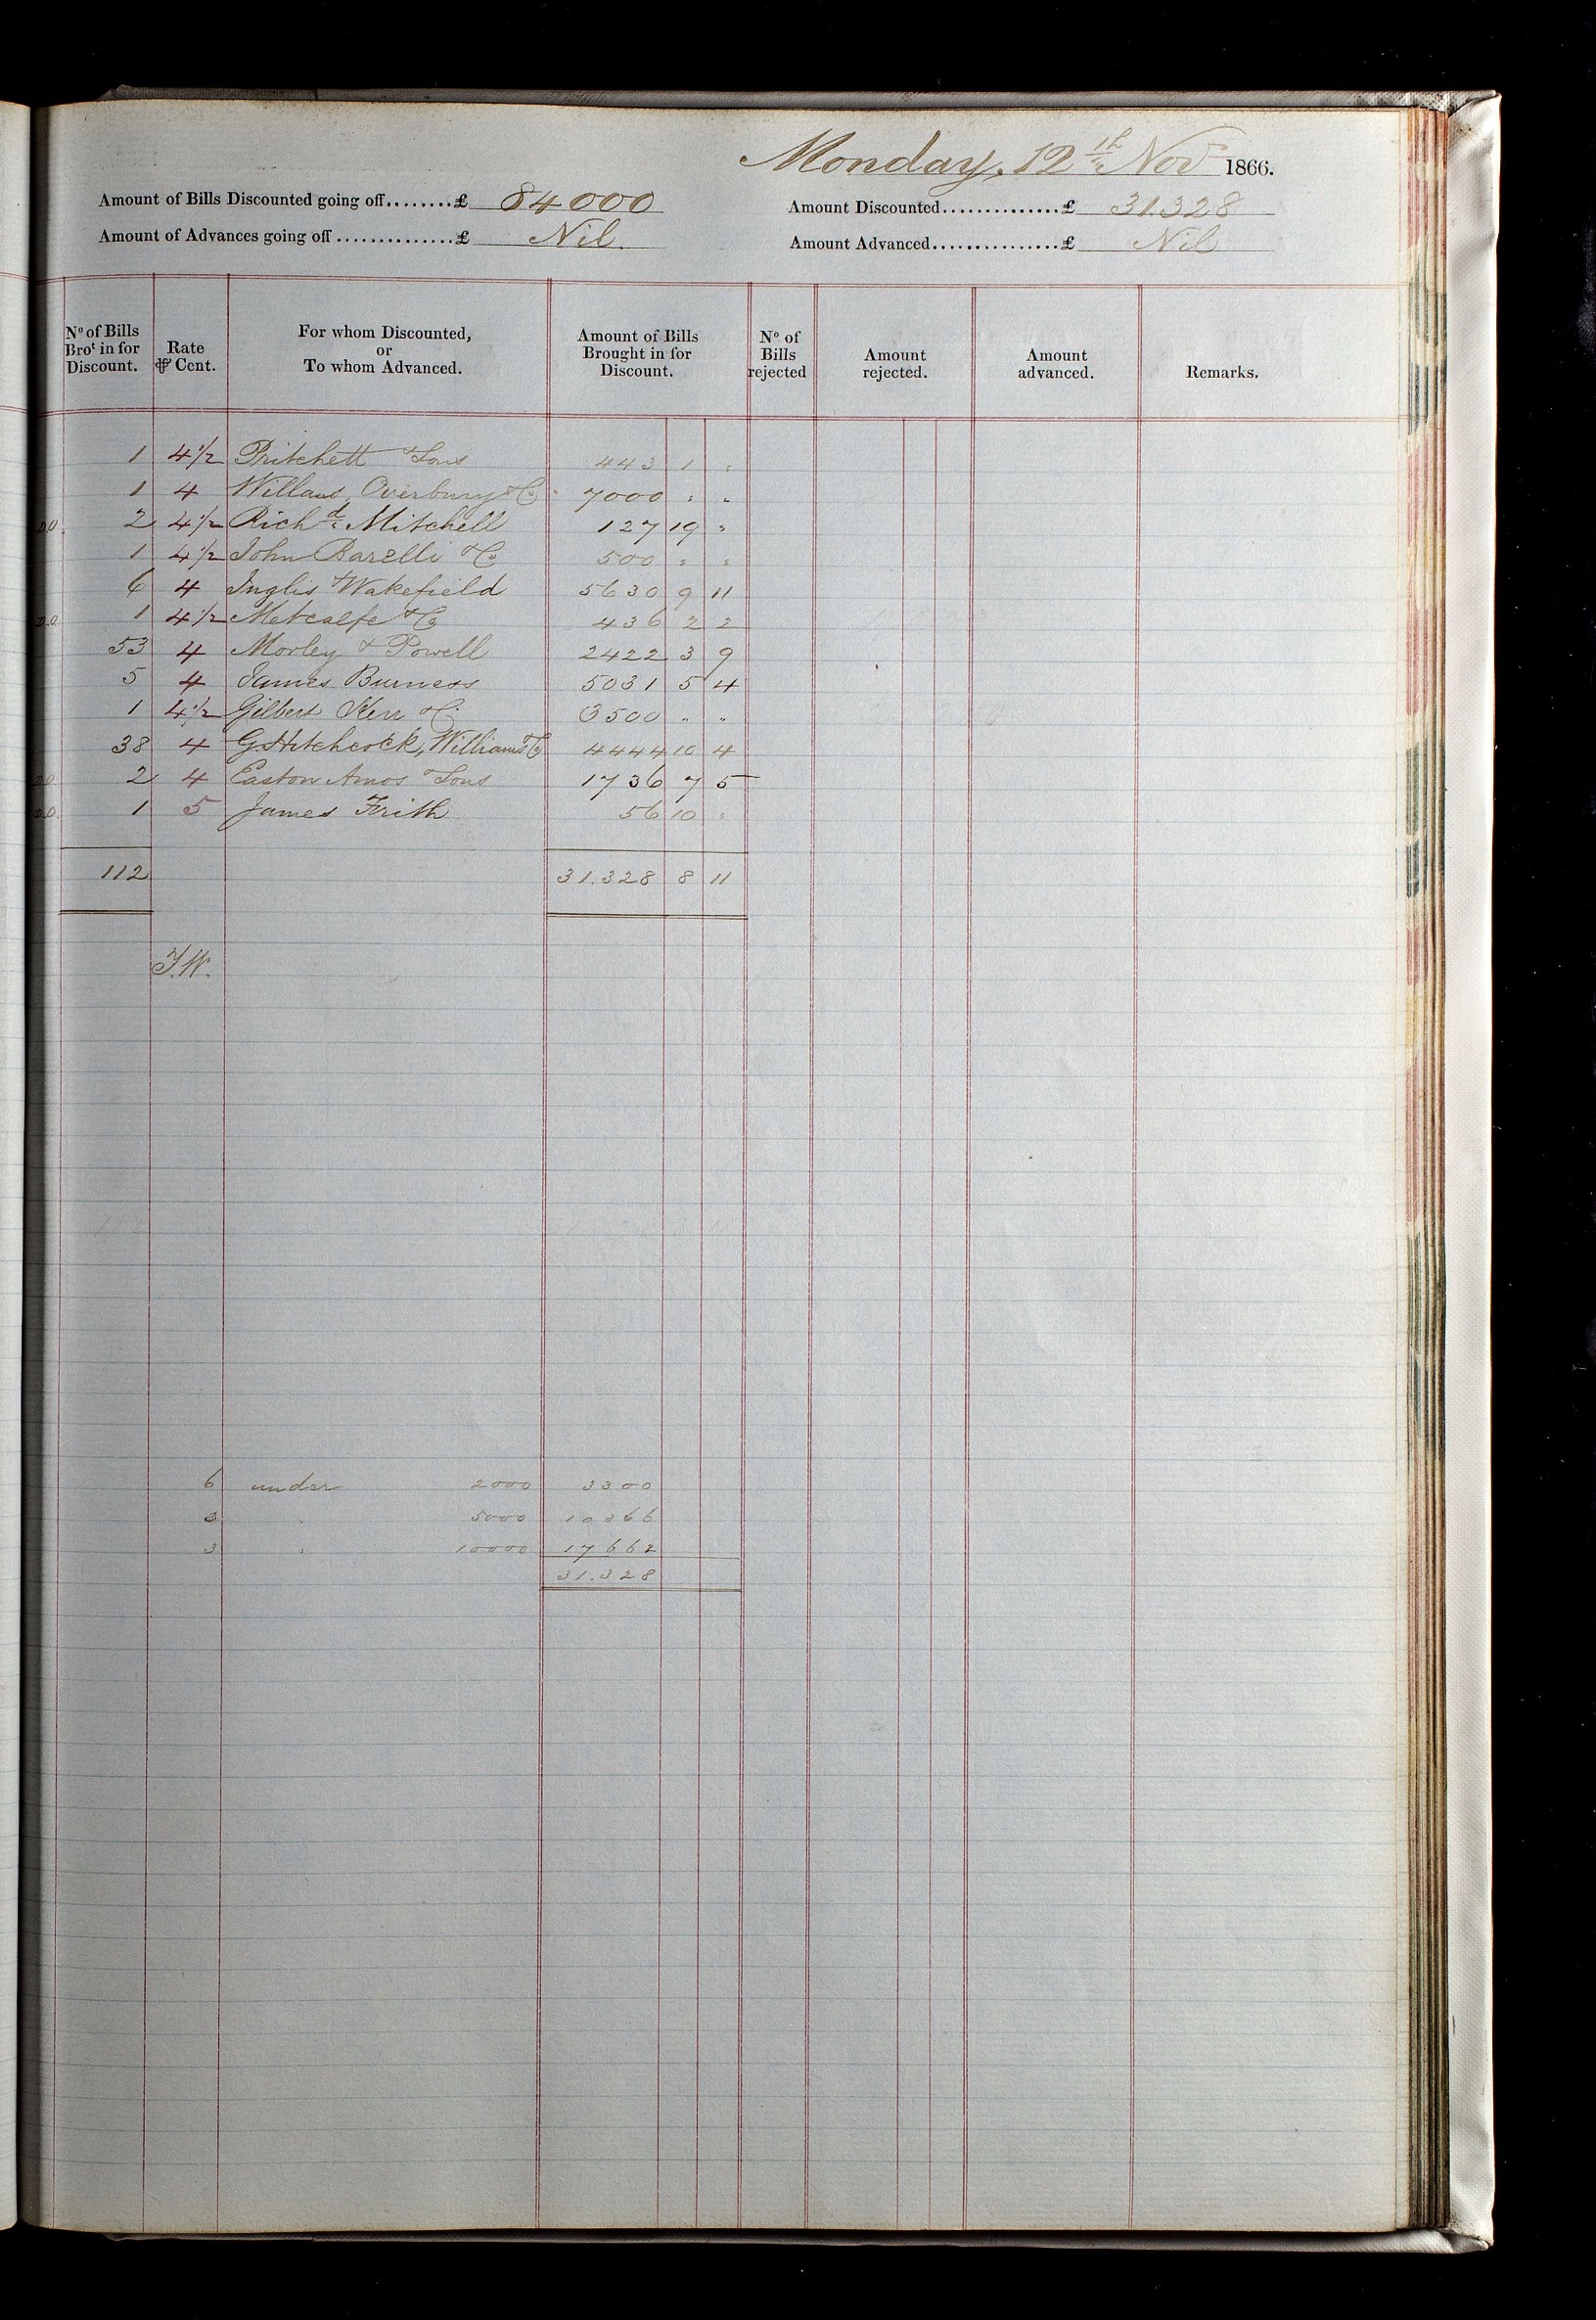 Monday, 12th Novr 1866.
Amount of Bills Discounted going off........£ 84000
Amount Discounted..............£ 31.328
Amount of Advances going off..............£ Nil.
Amount Advanced................£ Nil
No of Bills Brot in for Discount.
Rate ⅌ Cent.
For whom Discounted, or To whom Advanced.
Amount of Bills Brought in for Discount.
No of Bills rejected
Amount rejected.
Amount advanced.
Remarks.
1 4½ Pritchett & Sons 443 1 "
1 4 Willans, Overbury & Co 7000 " "
D.O. 2 4½ Richd Mitchell 127 19 "
1 4½ John Barelli & Co 500 " "
6 4 Inglis & Wakefield 5630 9 11
D.O. 1 4½ Metcalfe & Co 436 2 2
53 4 Morley & Powell 2422 3 9
5 4 James Burness 5031 5 4
1 4½ Gilbert Kerr & Co 3500 " "
38 4 G Hitchcock, Williams & Co 4444 10 4
D.O. 2 4 Easton Amos & Sons 1736 7 5
D.O. 1 5 James Frith 56 10 "
112 31.328 8 11
F.W.
6 under 2000 3300
3 " 5000 10366
3 " 10000 17662
31.328